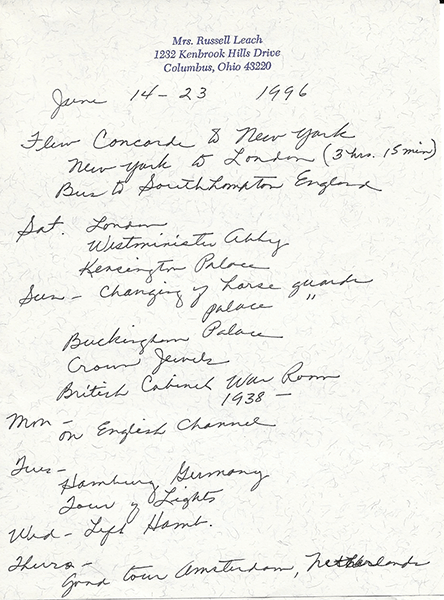 Mrs. Russell Leach
1232 Kenbrook Hills Drive
Columbus, Ohio 43220
June 14-23 1996
Flew Concorde to New York
New York to London (3 hrs. 15 min)
Bus to Southhampton England
Sat. London
Westminister Abby
Kensington Palace
Sun - Changing of horse guards
palace "
Buckingham Palace
Crown Jewels
British Cabinet War Room
1938 -
Mon -
on English Channel
Tues -
Hamburg Germany
Tour of Lights
Wed - Left Hamb.
Thurs -
Good tour Amsterdam, Netherlands